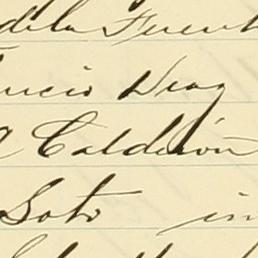 dela Fuent
ncio Diaz
a Calderón
Soto in